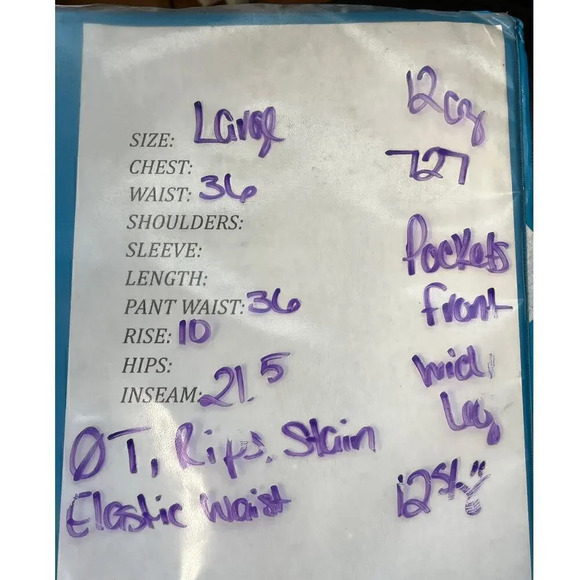 SIZE: Large
CHEST:
WAIST: 36
SHOULDERS:
SLEEVE:
LENGTH:
PANT WAIST: 36
RISE: 10
HIPS:
INSEAM: 21.5
ØT, Rips, Stain
Elastic Waist
12oz
727
Pockets
front
mid
Leg